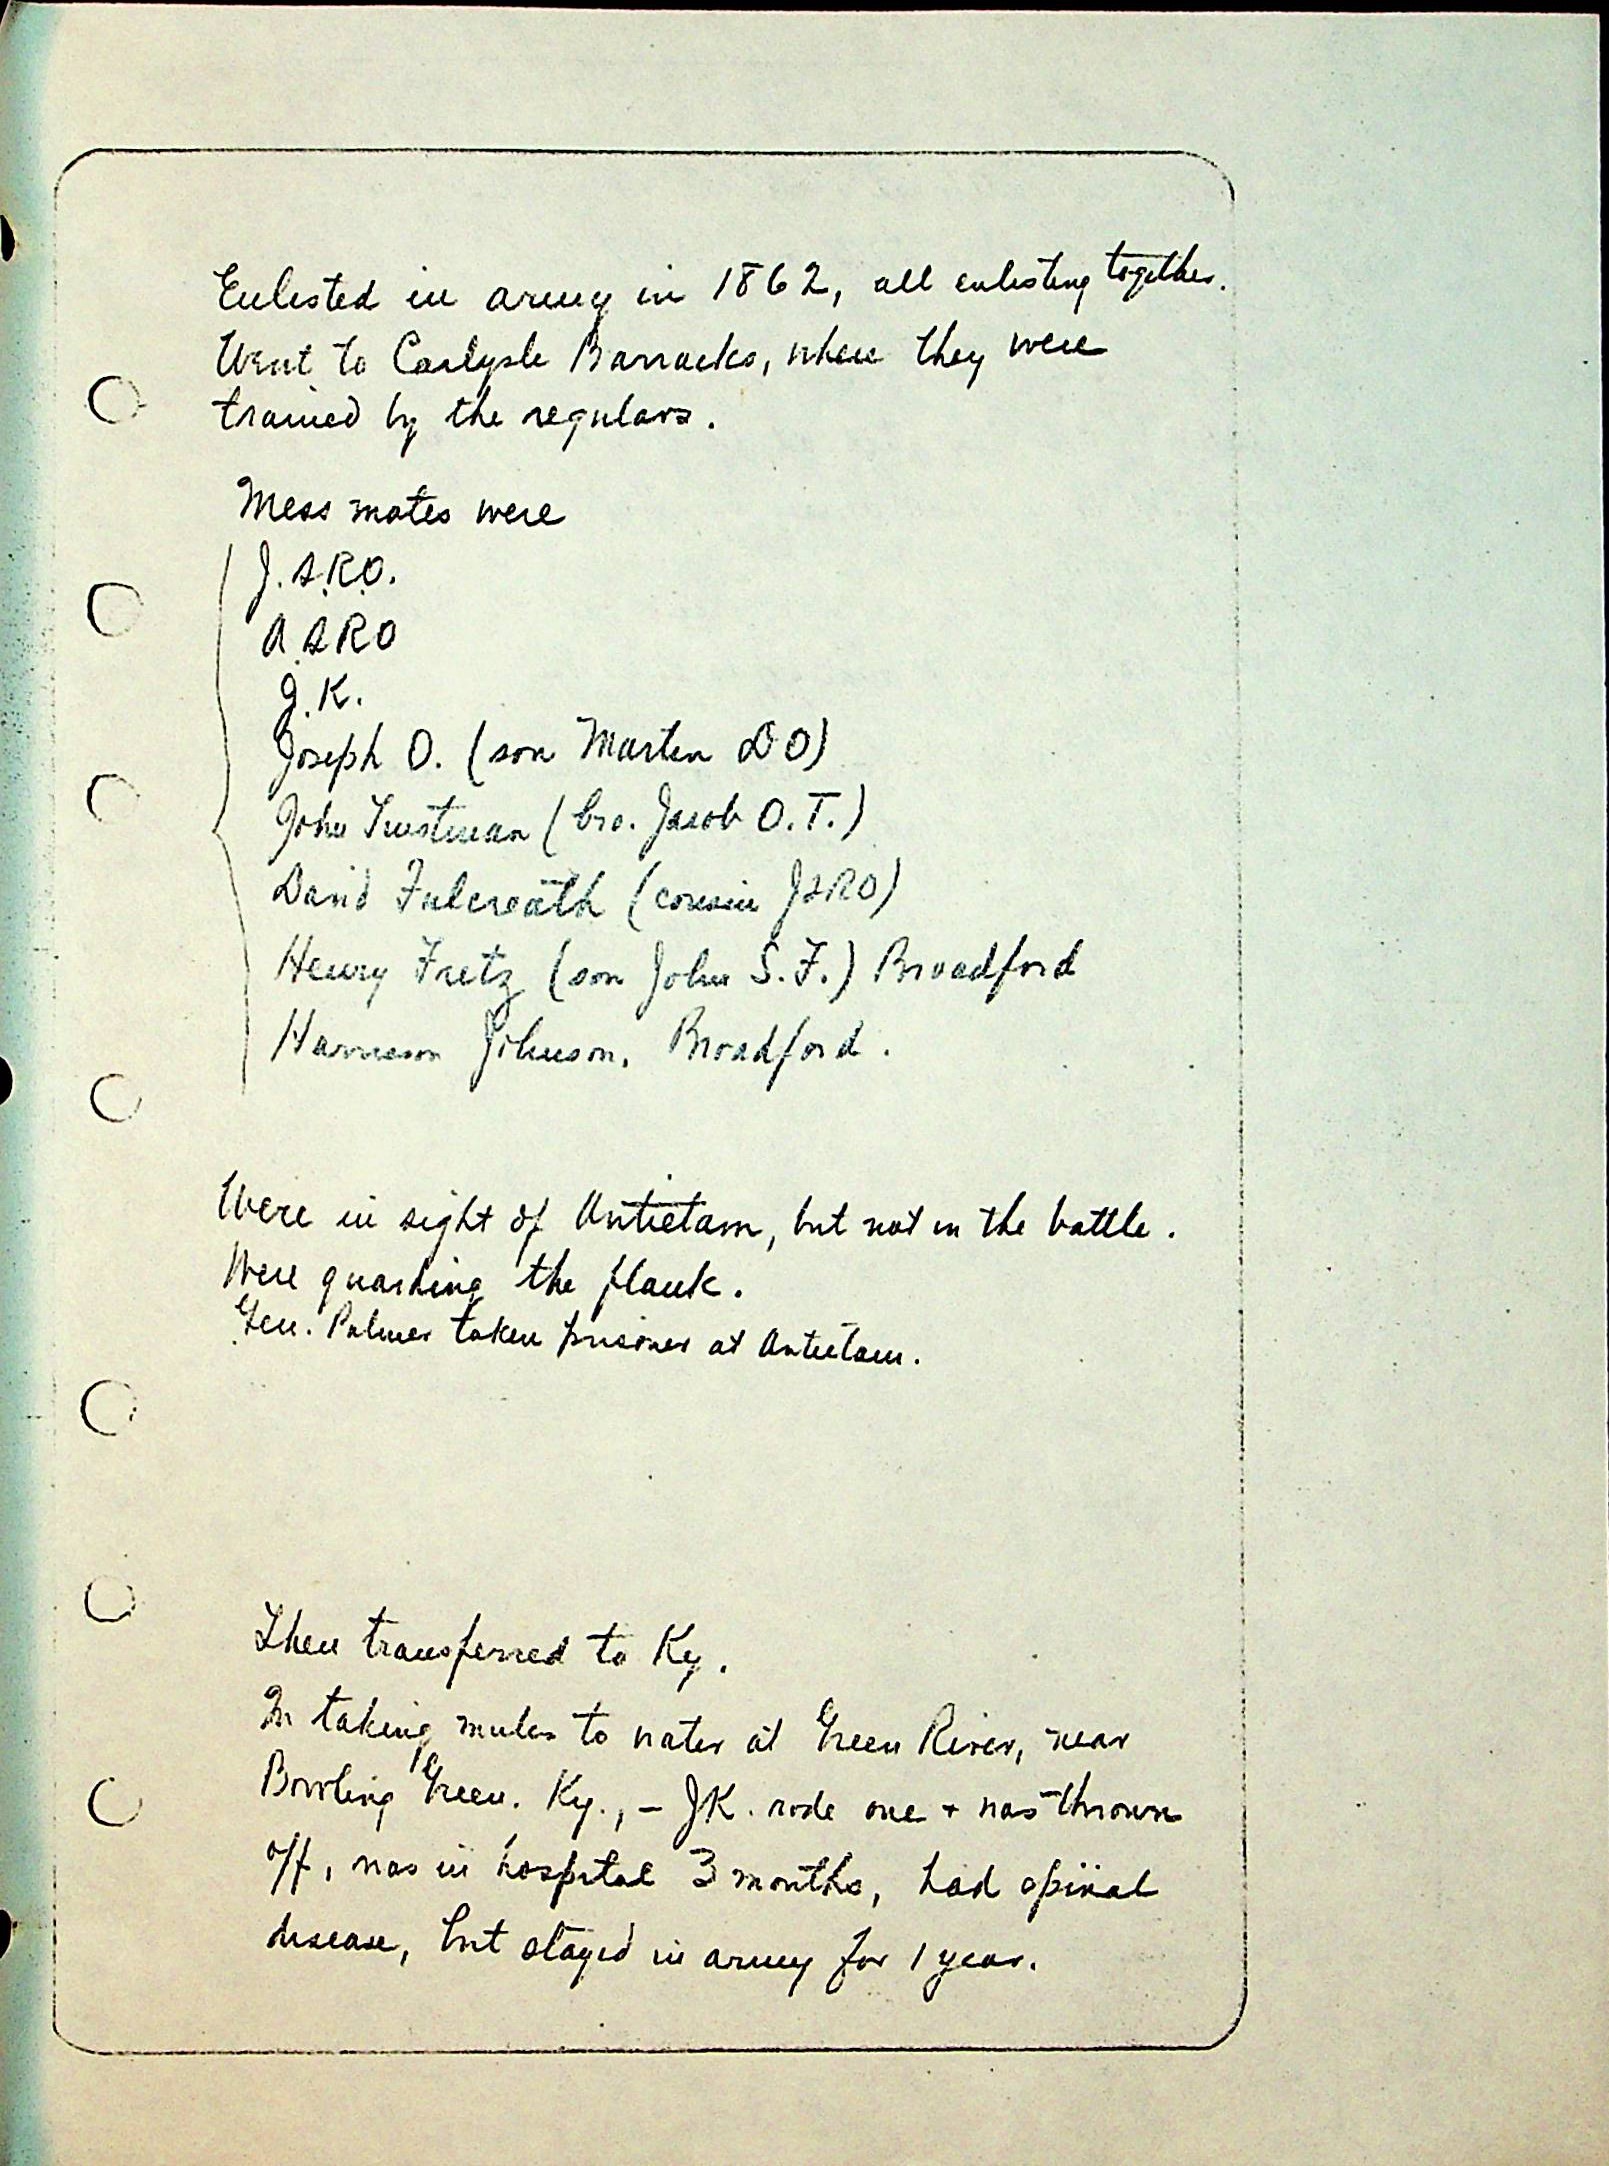 Enlisted in army in 1862, all enlisting together.
Went to Carlysle Barracks, where they were
trained by the regulars.
Mess mates were
J.S.R.O.
A.SRO
J.K.
Joseph O. (son Martin DO)
John Trustman (bro. Jacob O.T.)
David Fulcreath (cousin JSRO)
Henry Fretz (son John S.F.) Broadford
Harrison Johnson, Broadford.
Were in sight of Antietam, but not in the battle.
Were guarding the flank.
Gen. Palmer taken prisoner at Antietam.
Then transferred to Ky.
In taking mules to water at Green River, near
Bowling Green. Ky., – JK. rode one + was thrown
off, was in hospital 3 months, had spinal
disease, but stayed in army for 1 year.